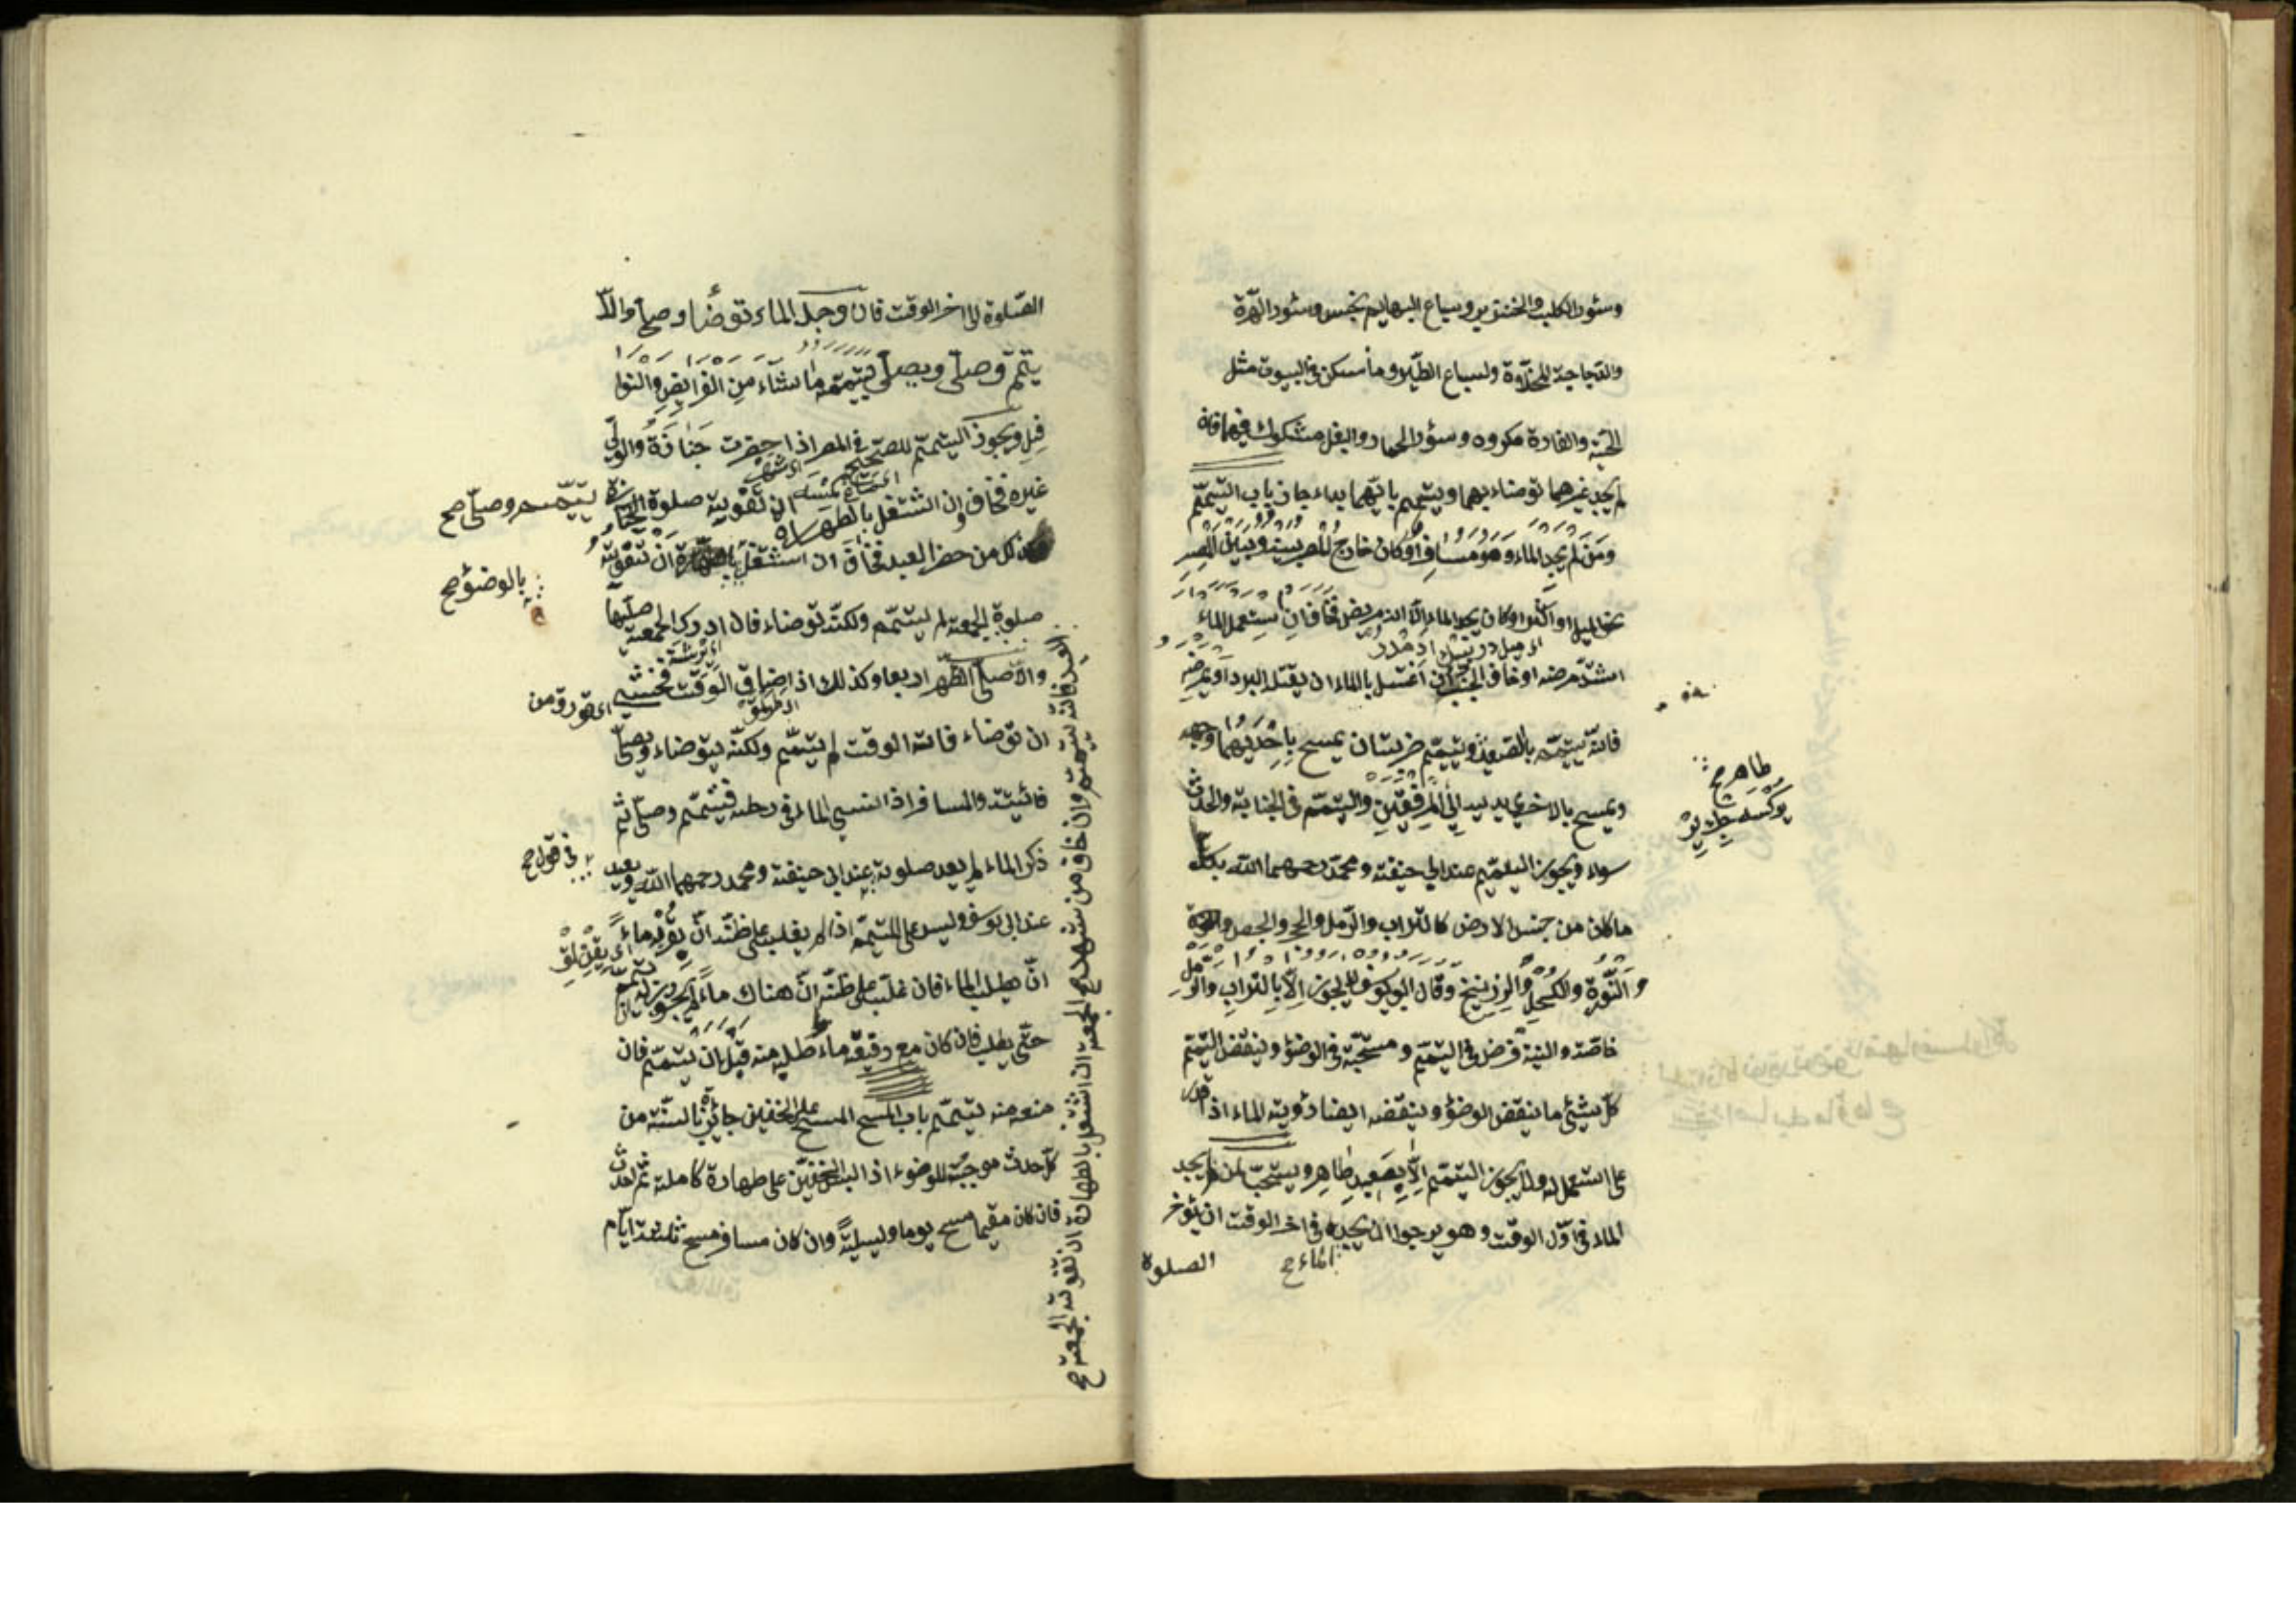 وسئور الكلب والخنزير وسباع البهايم نجس وسئور الهرّة
والدّجاجة المخلّاوة ولسباع الطّير وما سكن فى البيوت مثل
الحيّة والفارة مكروه وسؤر الحمار والبغل مشكوك فيهما فان
لم يجد غيرهما توضاء بهما ويتيمم بايّهما بداء جاز باب التيمّم
ومَن لم يجد الماء وهو مسافر او كان خارج المصر بينه وبين المصر
نحو الميل او اكثر او كان يجد الماء الّا انه مريض فخاف ان يستعمل الماء
اشتدّ مرضه او خاف الجنب ان اغتسل بالماء ان يقتله البرد او يمرضه
فانّه يتيمّم بالصّعيد ويتيمّم ضربتان يمسح بِاِحْدَيْهُما وجهه
ويمسح بالاخرى يديه اِلَى المِرفقين والتيمّم فى الجنابة والحدث
سواء ويجوز التيمّم عند ابى حنيفة ومحمّد رحمهما الله بكلّ
ما كان من جنس الارض كالتراب والرّمل والحجر والجصّ
والنّورة والكحل والزرنيخ وقال ابويوسف لا يجوز اِلّا بالتراب والرّمل
خاصّة والنية فرض فى التيمّم ومستحبّة فى الوضؤ وينقض التيمّم
كلّ شيئ ما ينقض الوضؤ وينقضه ايضا رؤية الماء اذا قدر
على استعمله ولا يجوز التيمّم اِلّا بِصَعِيدٍ طاهِرٍ ويستحبّ لمن لم يجد
الماء فى اوّل الوقت وهو يرجوا ان يجده فى اخر الوقت ان يؤخر
الماء صح
الصلوة
طاهر صح
الصّلوة الى اخر الوقت فان وجد الماء توضأ وصلّى والّا
يتمّم وصلّى ويصلّى بتيمّمه ما شآء مِن الفرايض والنوا
فِل ويجوز التيمّم للصّحيح فى المصر اذا حضرت جَنازَةٌ والولىّ
غيره فخاف ان اشتغل بالطّهارة ان تفوته صلوة الجنازة
يتيمّم وصلّى صح
وكذلك من حضر العيد فخاف ان اشتغل بالطهارة ان تفوته
بالوضؤ صح
صلوة الجمعة لم يتيمّم ولكنّه توضاء فان ادرك الجمعة صلّيها
والّا صلّى الظهر اربعا وكذلك اذا ضاق الوقت فخشى
ان توضاء فاته الوقت لم يتيمّم ولكنّه يتوضاء ويصلّى
فائيتة والمسافر اذا نسى الماء فى رحله فيتيمّم وصلّى ثم
ذكر الماء لم يعد صلوته عند ابى حنيفة ومحمد رحمهما الله ويعيد
فى قول صح
عند ابى يوسف وليس على المتيمّم اذا لم يغلب على ظنّه انّ بقربه ماءً
انّ يطلب الماء فان غلب على ظنّه انّ هناك ماءً لم يجز له ان يتيمّم
حتّى يطلب فان كان مع رفيقه ماء طلبه منه قبل ان يتيمّم فان
منعه منه يتيمّم باب المسح المسح على الخفين جائز بالسنّة من
كلّ حدث موجبة للوضوء اذا لبس الخفين على طهارة كاملة ثم احدث
فان كان مقيما مسح يوما وليلةً وان كان مسافر مسح ثلثة ايّام
العيد فانّه يتيمّم وان خاف من شهد الجمعة ان اشتغل بالطهارة ان تفوته الجمعة صح